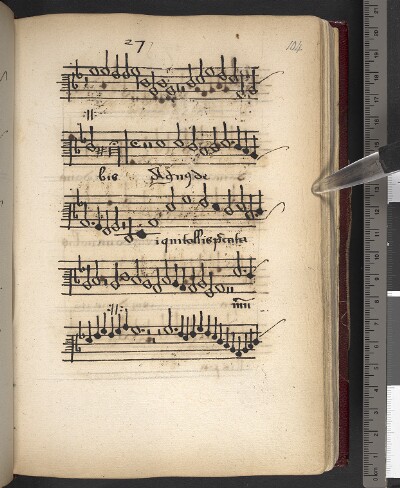 27
104
bis Agnus de
i qui tollis peccata
mu